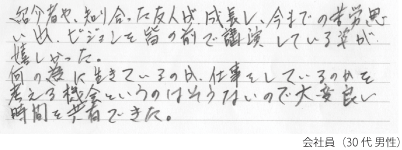 紹介者や、知り合った友人が、成長し、今までの苦労思
い出、ビジョンを皆の前で講演している姿が
嬉しかった。
何の為に生きているのか、仕事をしているのかを
考える機会というのはそうないので大変良い
時間を共有できた。
会社員（30代男性）